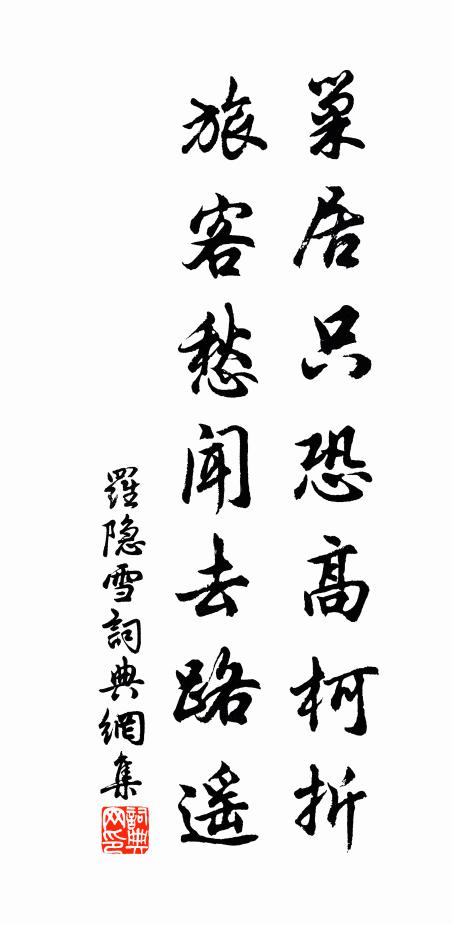 巢居只恐高柯折
旅客愁闻去路遥
羅隐雪詞典網集
詞典网印